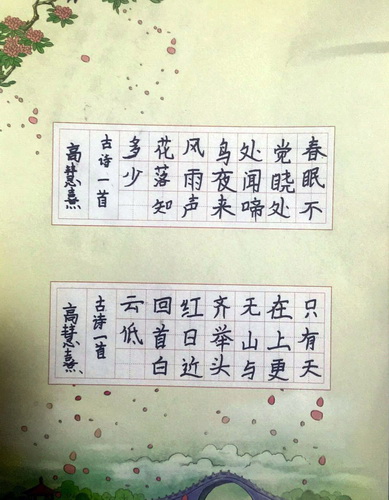 春眠不
觉晓处
处闻啼
鸟夜来
风雨声
花落知
多少
古诗一首
高慧熹
只有天
在上更
无山与
齐举头
红日近
回首白
云低
古诗一首
高慧熹